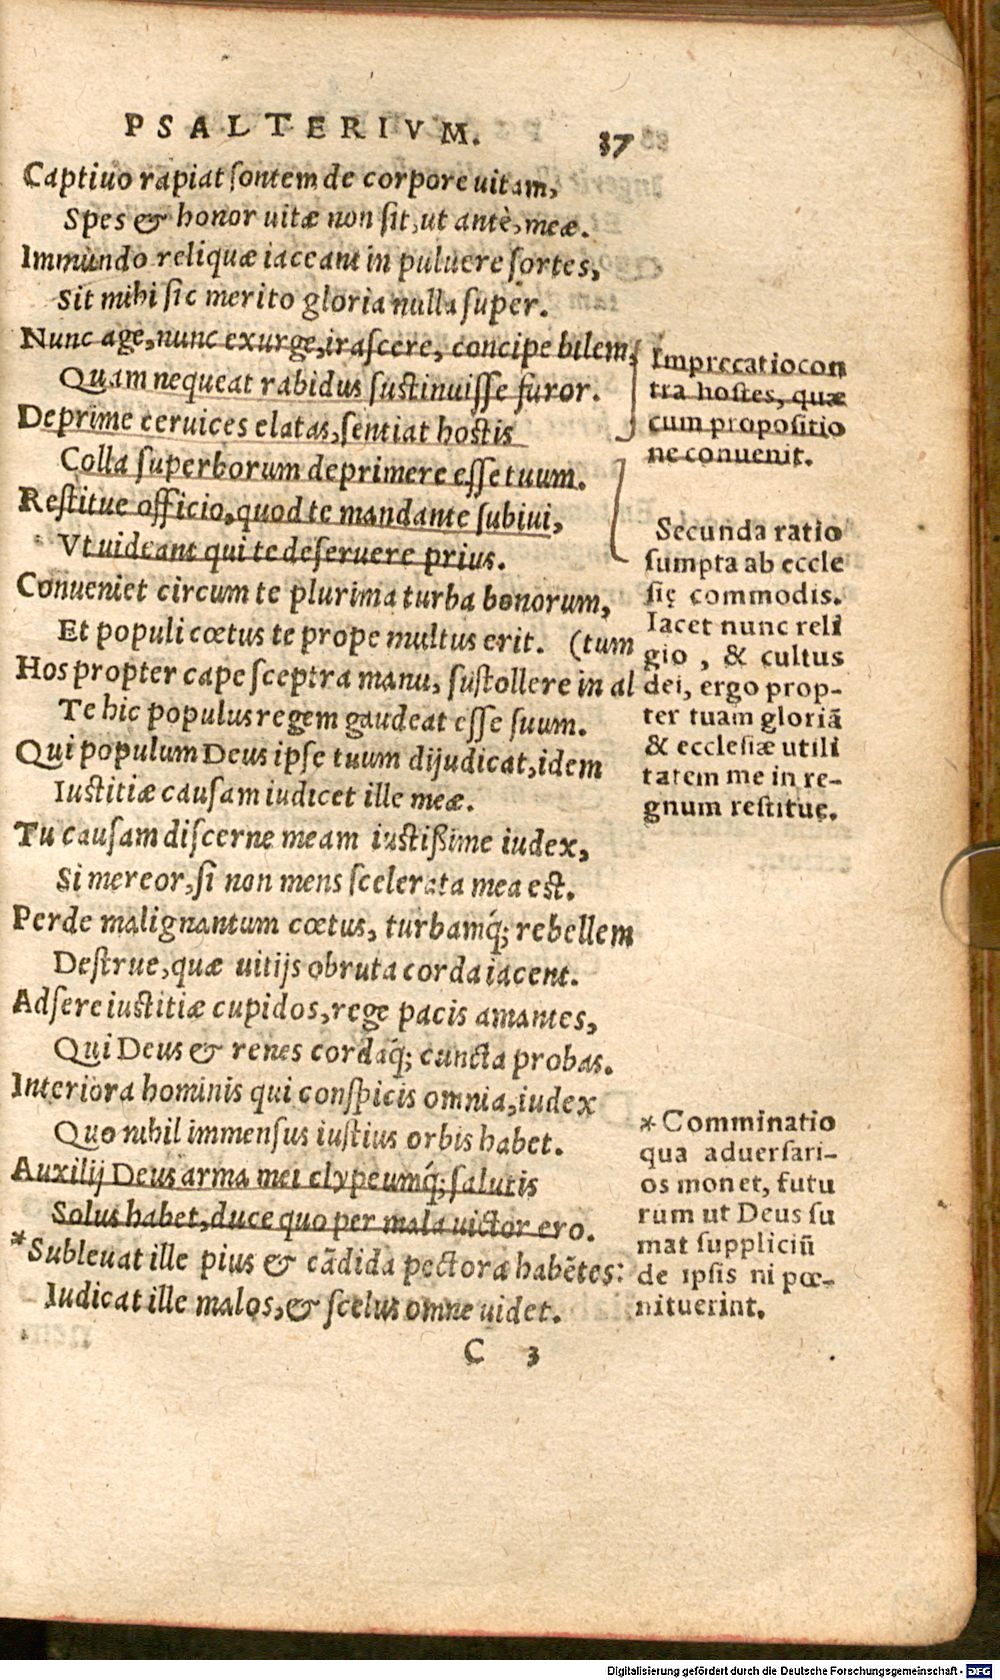 PSALTERIVM. 37
Captiuo rapiat sontem de corpore uitam,
Spes & honor uitæ non sit, ut antè, meæ.
Immundo reliquæ iaceant in puluere sortes,
Sit mihi sic merito gloria nulla super.
Nunc age, nunc exurge, irascere, concipe bilem,
Quam nequeat rabidus sustinuisse furor.
Deprime ceruices elatas, sentiat hostis
Colla superborum deprimere esse tuum.
Restitue officio, quod te mandante subiui,
Vt uideant qui te deseruere prius.
Conueniet circum te plurima turba bonorum,
Et populi cœtus te prope multus erit. (tum
Hos propter cape sceptra manu, sustollere in al
Te hic populus regem gaudeat esse suum.
Qui populum Deus ipse tuum dijudicat, idem
Iustitiæ causam iudicet ille meæ.
Tu causam discerne meam iustißime iudex,
Si mereor, si non mens scelerata mea est.
Perde malignantum cœtus, turbamq́; rebellem
Destrue, quæ uitijs obruta corda iacent.
Adsere iustitiæ cupidos, rege pacis amantes,
Qui Deus & renes cordaq́; cuncta probas.
Interiora hominis qui conspicis omnia, iudex
Quo nihil immensus iustius orbis habet.
Auxilij Deus arma mei clypeumq́; salutis
Solus habet, duce quo per mala uictor ero.
*Subleuat ille pius & cãdida pectora habẽtes:
Iudicat ille malos, & scelus omne uidet.
C 3
Imprecatio con
tra hostes, quæ
cum propositio
ne conuenit.
Secunda ratio
sumpta ab eccle
się commodis.
Iacet nunc reli
gio, & cultus
dei, ergo prop-
ter tuam gloriã
& ecclesiæ utili
tatem me in re-
gnum restitue.
*Comminatio
qua aduersari-
os monet, futu
rum ut Deus su
mat suppliciũ
de ipsis ni pœ-
nituerint.
Digitalisierung gefördert durch die Deutsche Forschungsgemeinschaft - DFG